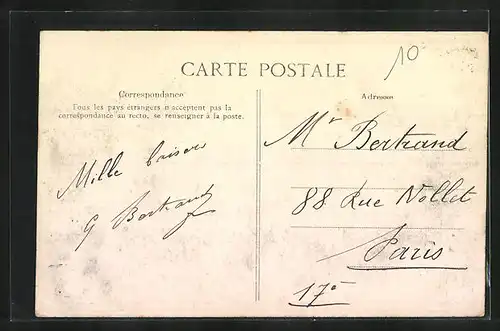 10
CARTE POSTALE
Correspondance
Tous les pays étrangers n'acceptent pas la
correspondance au recto, se renseigner à la poste.
Mille baisers
G Bertrand
Adresse
Mr Bertrand
88 Rue Nollet
Paris
17e